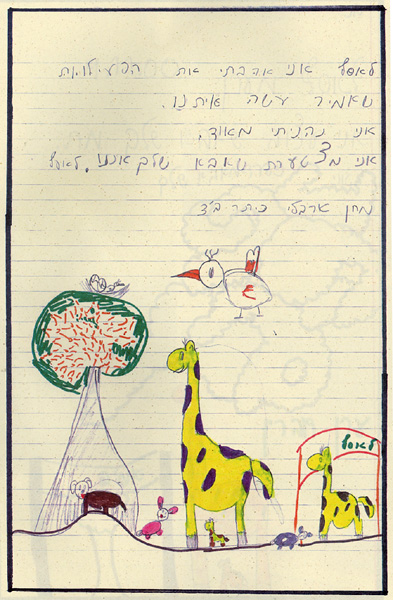 לאסף אני אהבתי את הפעילויות
שאמיר עשה איתנו.
אני נהניתי מאוד,
אני מצטערת שאבא שלך איננו, לאסף
מחן ארבלי כיתה
לאסף